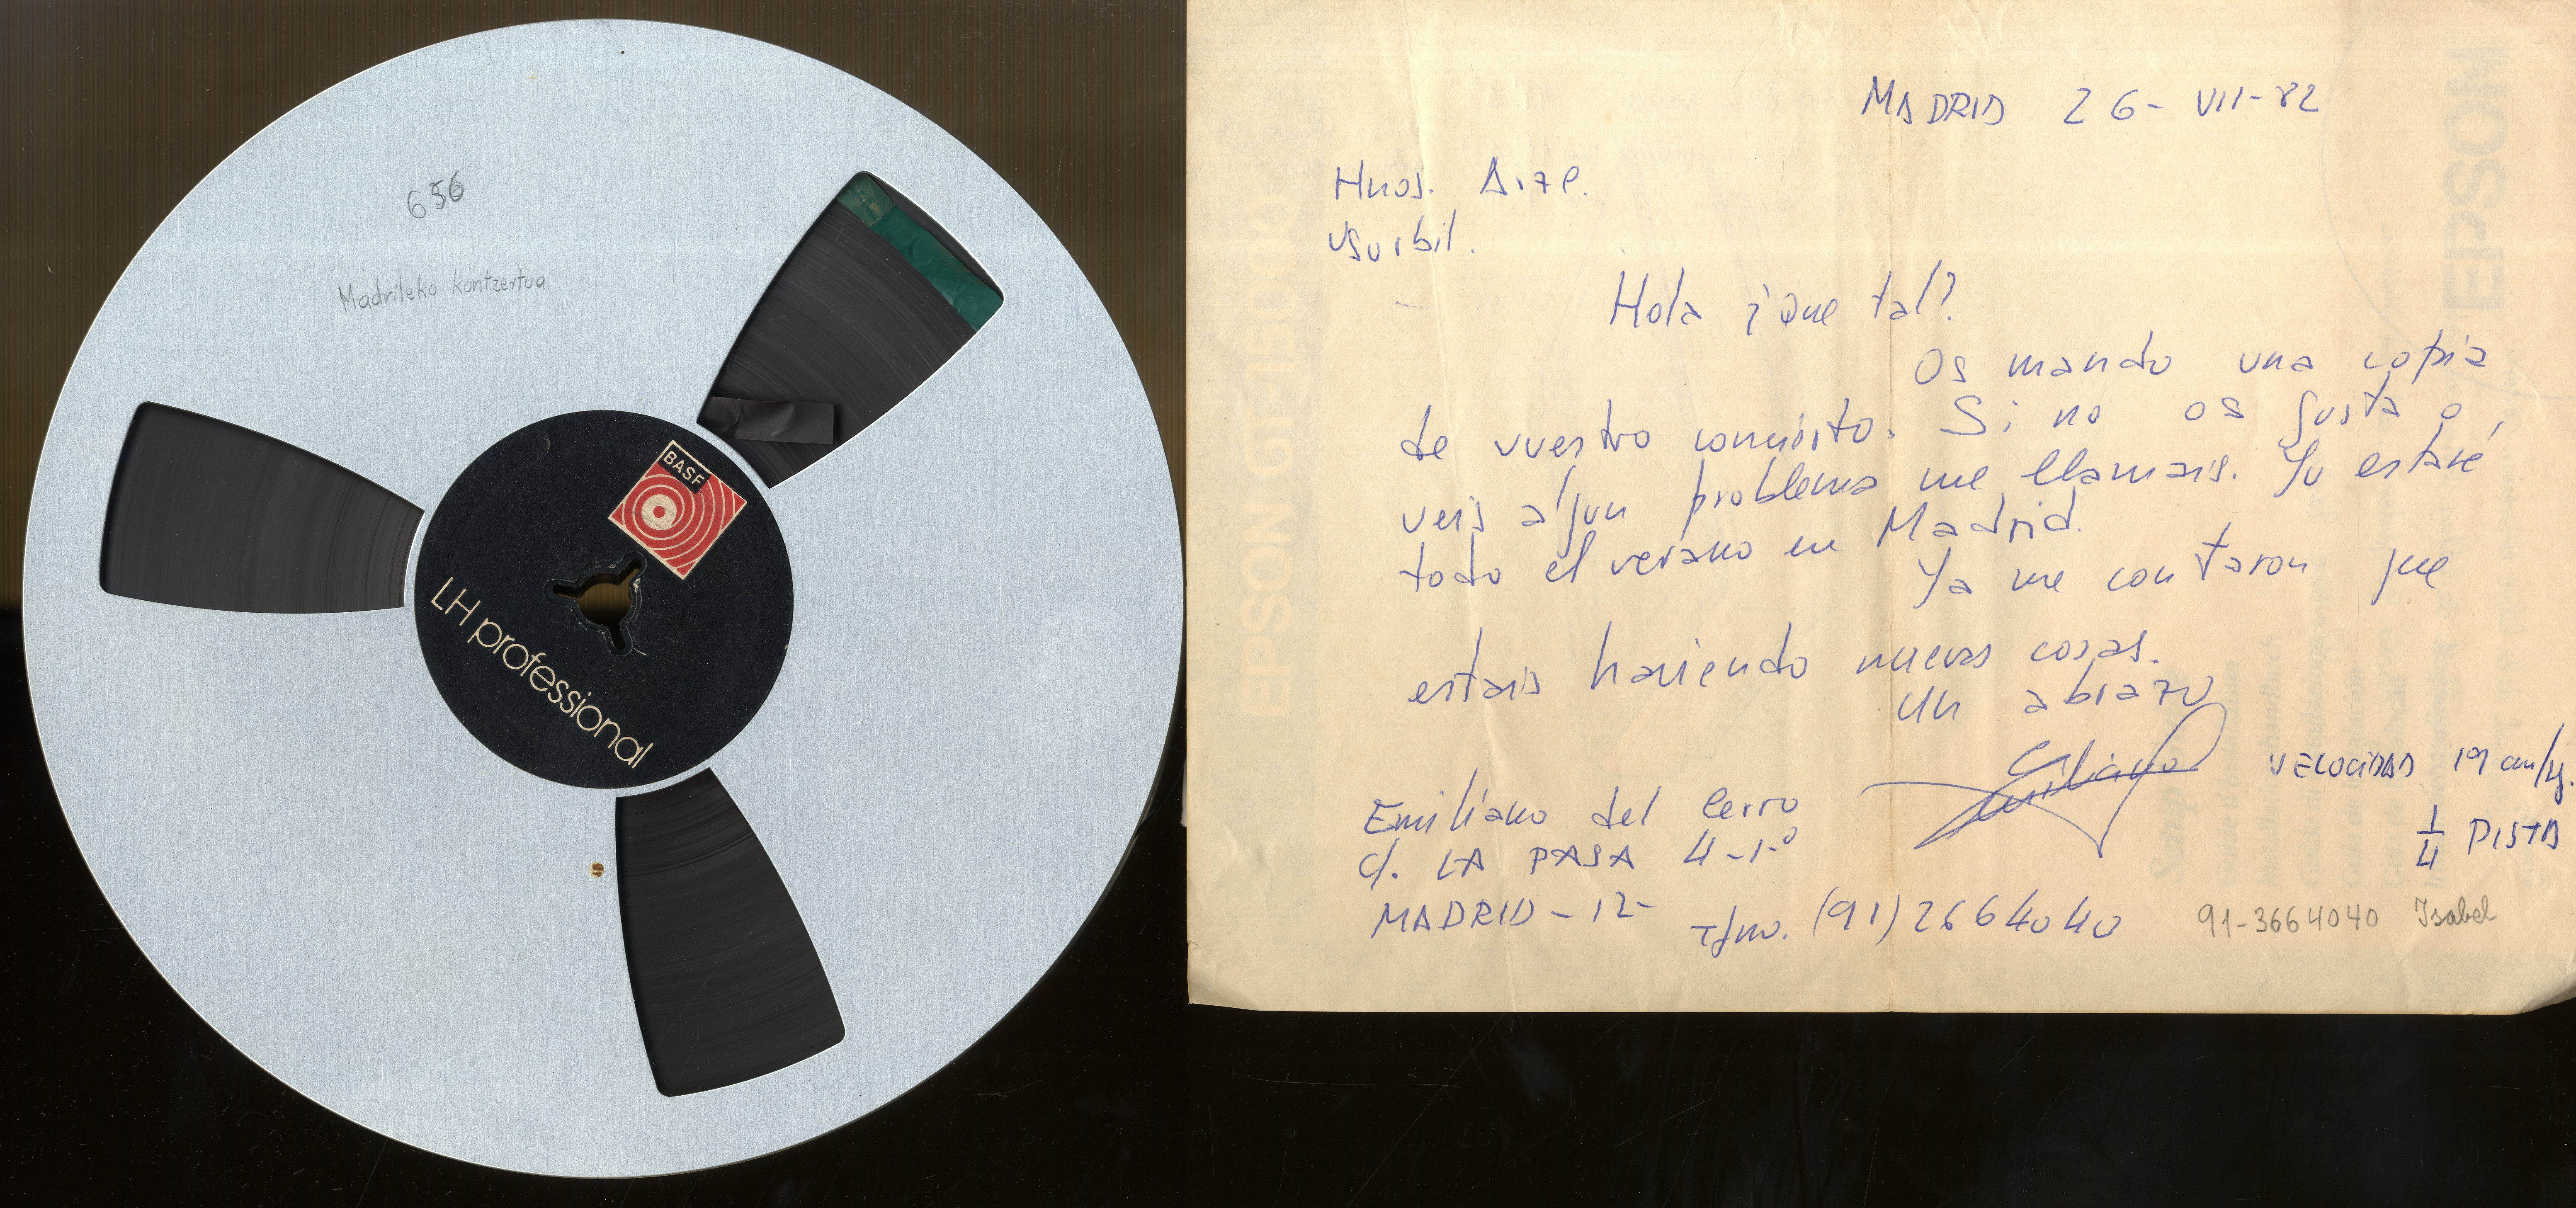 656
Madrileko kontzertua
BASF
LH professional
MADRID 26-VII-82
Hnos. Arze.
Usurbil.
Hola ¿Que tal?
Os mando una copia
de vuestro concierto. Si no os gusta o
veis algun problema me llamais. Yo estaré
todo el verano en Madrid.
Ya me contaron que
estais haciendo nuevas cosas.
Un abrazo
Emiliano
VELOCIDAD 19 cm/sg.
1/4 PISTA
Emiliano del Cerro
C/. LA PASA 4-1-º
MADRID-12-
Tfno. (91) 2664040
91-3664040 Isabel
EPSON
EPSON GT-15000